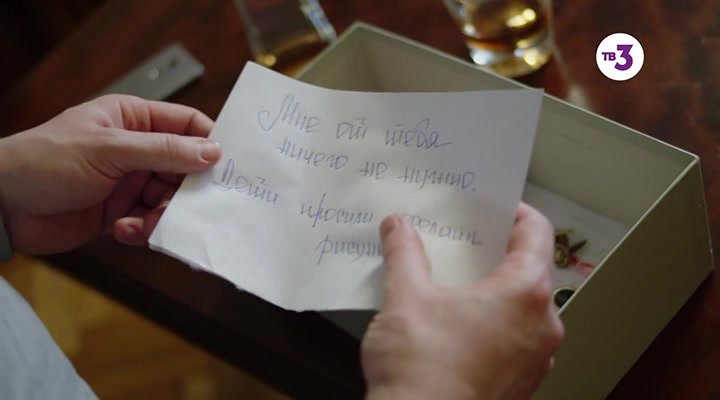 ТВ3
Мне от тебя
ничего не нужно.
Дети просили